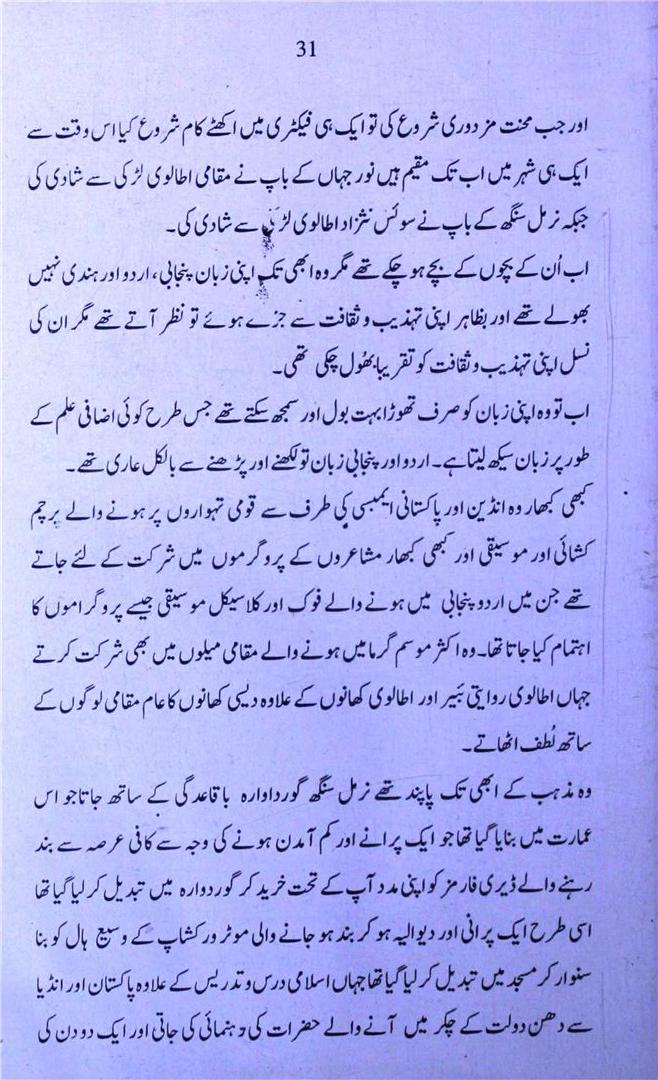 31
اور جب محنت مزدوری شروع کی تو ایک ہی فیکٹری میں اکھٹے کام شروع کیا اس وقت سے
ایک ہی شہر میں اب تک مقیم ہیں نور جہاں کے باپ نے مقامی اطالوی لڑکی سے شادی کی
جبکہ نرمل سنگھ کے باپ نے سوئس نژاد اطالوی لڑکی سے شادی کی۔
اب اُن کے بچوں کے بچے ہو چکے تھے مگر وہ ابھی تک اپنی زبان پنجابی، اردو اور ہندی نہیں
بھولے تھے اور بظاہر اپنی تہذیب و ثقافت سے جڑے ہوئے تو نظر آتے تھے مگر ان کی
نسل اپنی تہذیب و ثقافت کو تقریبا بھُول چکی تھی۔
اب تو وہ اپنی زبان کو صرف تھوڑا بہت بول اور سمجھ سکتے تھے جس طرح کوئی اضافی علم کے
طور پر زبان سیکھ لیتا ہے۔ اردو اور پنجابی زبان تو لکھنے اور پڑھنے سے بالکل عاری تھے۔
کبھی کبھار وہ انڈین اور پاکستانی ایمبسی کی طرف سے قومی تہواروں پر ہونے والے پرچم
کشائی اور موسیقی اور کبھی کبھار مشاعروں کے پروگرموں میں شرکت کے لئے جاتے
تھے جن میں اردو پنجابی میں ہونے والے فوک اور کلاسیکل موسیقی جیسے پروگراموں کا
اہتمام کیا جاتا تھا۔ وہ اکثر موسم گرما میں ہونے والے مقامی میلوں میں بھی شرکت کرتے
جہاں اطالوی روایتی بئیر اور اطالوی کھانوں کے علاوہ دیسی کھانوں کا عام مقامی لوگوں کے
ساتھ لُطف اٹھاتے۔
وہ مذہب کے ابھی تک پابند تھے نرمل سنگھ گورداوارہ باقاعدگی کے ساتھ جاتا جو اس
عمارت میں بنایا گیا تھا جو ایک پرانے اور کم آمدن ہونے کی وجہ سے کافی عرصہ سے بند
رہنے والے ڈیری فارمز کو اپنی مدد آپ کے تحت خرید کر گوردوارہ میں تبدیل کر لیا گیا تھا
اسی طرح ایک پرانی اور دیوالیہ ہو کر بند ہو جانے والی موٹر ورکشاپ کے وسیع ہال کو بنا
سنوار کر مسجد میں تبدیل کر لیا گیا تھا جہاں اسلامی درس و تدریس کے علاوہ پاکستان اور انڈیا
سے دھن دولت کے چکر میں آنے والے حضرات کی رہنمائی کی جاتی اور ایک دو دن کی